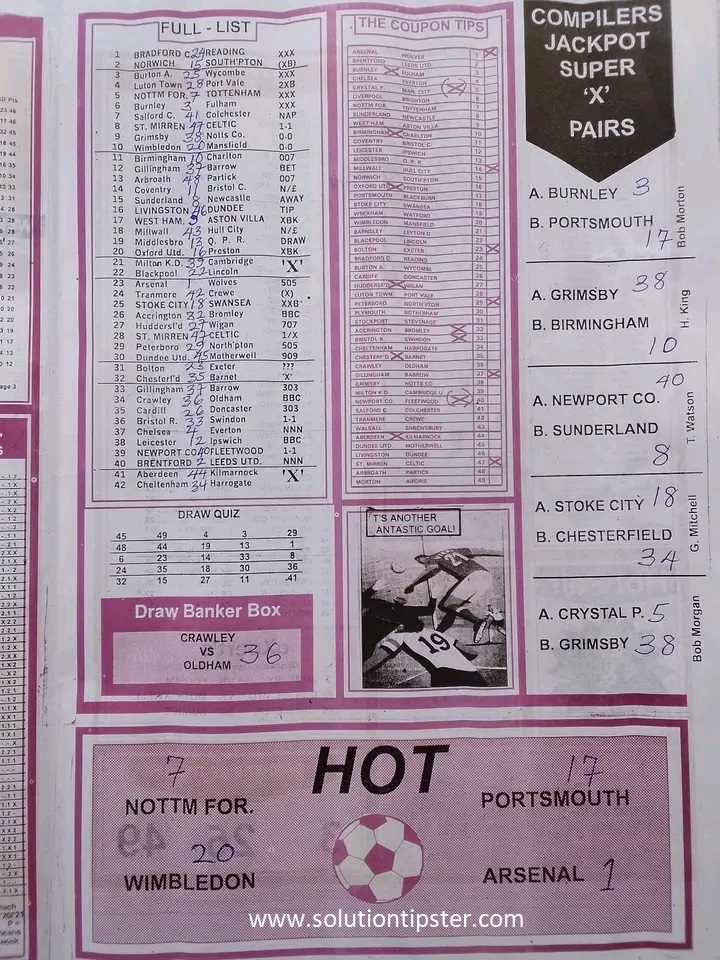 FULL - LIST
1 BRADFORD C. 24 READING XXX
2 NORWICH 15 SOUTH'PTON (XB)
3 Burton A. 25 Wycombe XXX
4 Luton Town 28 Port Vale 2XB
5 NOTTM FOR. 7 TOTTENHAM XXX
6 Burnley 3 Fulham XXX
7 Salford C. 41 Colchester NAP
8 ST. MIRREN 47 CELTIC 1-1
9 Grimsby 38 Notts Co. 0-0
10 Wimbledon 20 Mansfield 0-0
11 Birmingham 10 Charlton 007
12 Gillingham 37 Barrow BET
13 Arbroath 48 Partick 007
14 Coventry 11 Bristol C. N/£
15 Sunderland 8 Newcastle AWAY
16 LIVINGSTON 46 DUNDEE TIP
17 WEST HAM. 9 ASTON VILLA XBK
18 Millwall 43 Hull City N/£
19 Middlesbro 13 Q. P. R. DRAW
20 Oxford Utd. 16 Preston XBK
21 Milton K.D. 39 Cambridge 'X'
22 Blackpool 22 Lincoln
23 Arsenal 1 Wolves 505
24 Tranmere 42 Crewe (X)
25 STOKE CITY 18 SWANSEA XXB
26 Accrington 32 Bromley BBC
27 Huddersf'd 27 Wigan 707
28 ST. MIRREN 47 CELTIC 1/X
29 Peterboro 29 North'pton 505
30 Dundee Utd. 45 Motherwell 909
31 Bolton 23 Exeter ???
32 Chesterf'd 35 Barnet 'X'
33 Gillingham 37 Barrow 303
34 Crawley 36 Oldham BBC
35 Cardiff 26 Doncaster 303
36 Bristol R. 33 Swindon 1-1
37 Chelsea 4 Everton NNN
38 Leicester 12 Ipswich BBC
39 NEWPORT CO. 40 FLEETWOOD 1-1
40 BRENTFORD 2 LEEDS UTD. NNN
41 Aberdeen 44 Kilmarnock 'X'
42 Cheltenham 34 Harrogate
DRAW QUIZ
45 49 4 3 29
48 44 19 13 1
6 23 14 33 8
24 35 18 30 36
32 15 27 11 .41
Draw Banker Box
CRAWLEY
VS 36
OLDHAM
THE COUPON TIPS
ARSENAL WOLVES 1
BRENTFORD LEEDS UTD. 2
BURNLEY FULHAM 3
CHELSEA EVERTON 4
CRYSTAL P. MAN. CITY 5
LIVERPOOL BRIGHTON 6
NOTTM FOR TOTTENHAM 7
SUNDERLAND NEWCASTLE 8
WEST HAM ASTON VILLA 9
BIRMINGHAM CHARLTON 10
COVENTRY BRISTOL C. 11
LEICESTER IPSWICH 12
MIDDLESBRO Q. P. R. 13
MILLWALL HULL CITY 14
NORWICH SOUTH'PTON 15
OXFORD UTD PRESTON 16
PORTSMOUTH BLACKBURN 17
STOKE CITY SWANSEA 18
WREXHAM WATFORD 19
WIMBLEDON MANSFIELD 20
BARNSLEY LEYTON O. 21
BLACKPOOL LINCOLN 22
BOLTON EXETER 23
BRADFORD C. READING 24
BURTON A. WYCOMBE 25
CARDIFF DONCASTER 26
HUDDERSF'D WIGAN 27
LUTON TOWN PORT VALE 28
PETERBORO NORTH'PTON 29
PLYMOUTH ROTHERHAM 30
STOCKPORT STEVENAGE 31
ACCRINGTON BROMLEY 32
BRISTOL R. SWINDON 33
CHELTENHAM HARROGATE 34
CHESTERF'D BARNET 35
CRAWLEY OLDHAM 36
GILLINGHAM BARROW 37
GRIMSBY NOTTS CO 38
MILTON K.D. CAMBRIDGE U. 39
NEWPORT CO. FLEETWOOD 40
SALFORD C. COLCHESTER 41
TRANMERE CREWE 42
WALSALL SHREWSBURY 43
ABERDEEN KILMARNOCK 44
DUNDEE UTD MOTHERWELL 45
LIVINGSTON DUNDEE 46
ST. MIRREN CELTIC 47
ARBROATH PARTICK 48
MORTON AIRDRIE 49
T'S ANOTHER
ANTASTIC GOAL!
19
COMPILERS
JACKPOT
SUPER
'X'
PAIRS
A. BURNLEY 3
B. PORTSMOUTH
17
Bob Morton
A. GRIMSBY 38
B. BIRMINGHAM
10
H. King
40
A. NEWPORT CO.
B. SUNDERLAND
8
T. Watson
A. STOKE CITY 18
B. CHESTERFIELD
34
G. Mitchell
A. CRYSTAL P. 5
B. GRIMSBY 38
Bob Morgan
HOT
7
NOTTM FOR.
17
PORTSMOUTH
20
WIMBLEDON
ARSENAL 1
www.solutiontipster.com